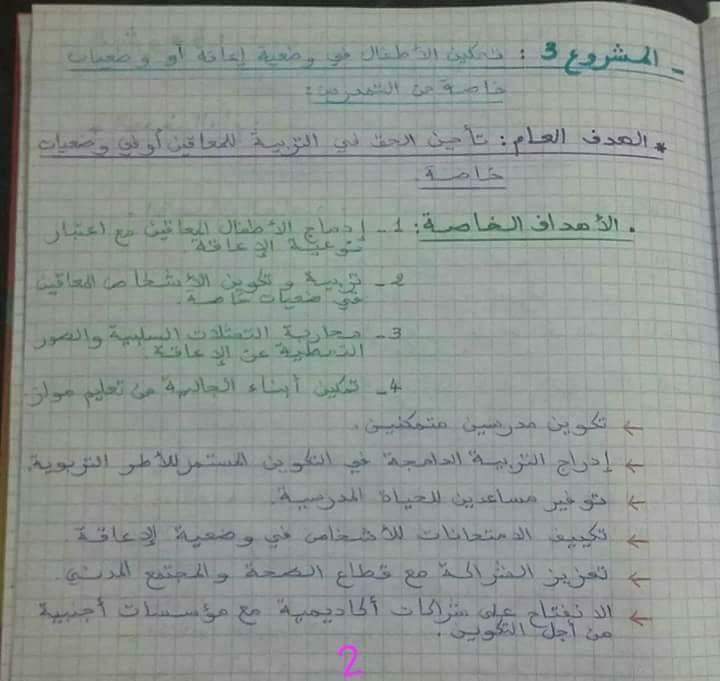 - المشروع 3 : تمكين الأطفال في وضعية إعاقة أو وضعيات
خاصة من التمدرس :
* الهدف العام : تأمين الحق في التربية للمعاقين أو في وضعيات
خاصة.
. الأهداف الخاصة : 1 - إدماج الأطفال المعاقين مع اعتبار
نوعية الإعاقة.
2 - تربية و تكوين الأشخاص المعاقين
في ضعيات خاصة.
3 - محاربة التمثلات السلبية والصور
النمطية عن الإعاقة.
4 - تمكين أبناء الجالية من تعليم مواز
← تكوين مدرسين متمكنين.
← إدراج التربية الدامجة في التكوين المستمر للأطر التربوية.
← توفير مساعدين للحياة المدرسية.
← تكييف الامتحانات للأشخاص في وضعية الإعاقة
← تعزيز الشراكة مع قطاع الصحة والمجتمع المدني
← الانفتاح على شراكات أكاديمية مع مؤسسات أجنبية
من أجل التكوين.
2